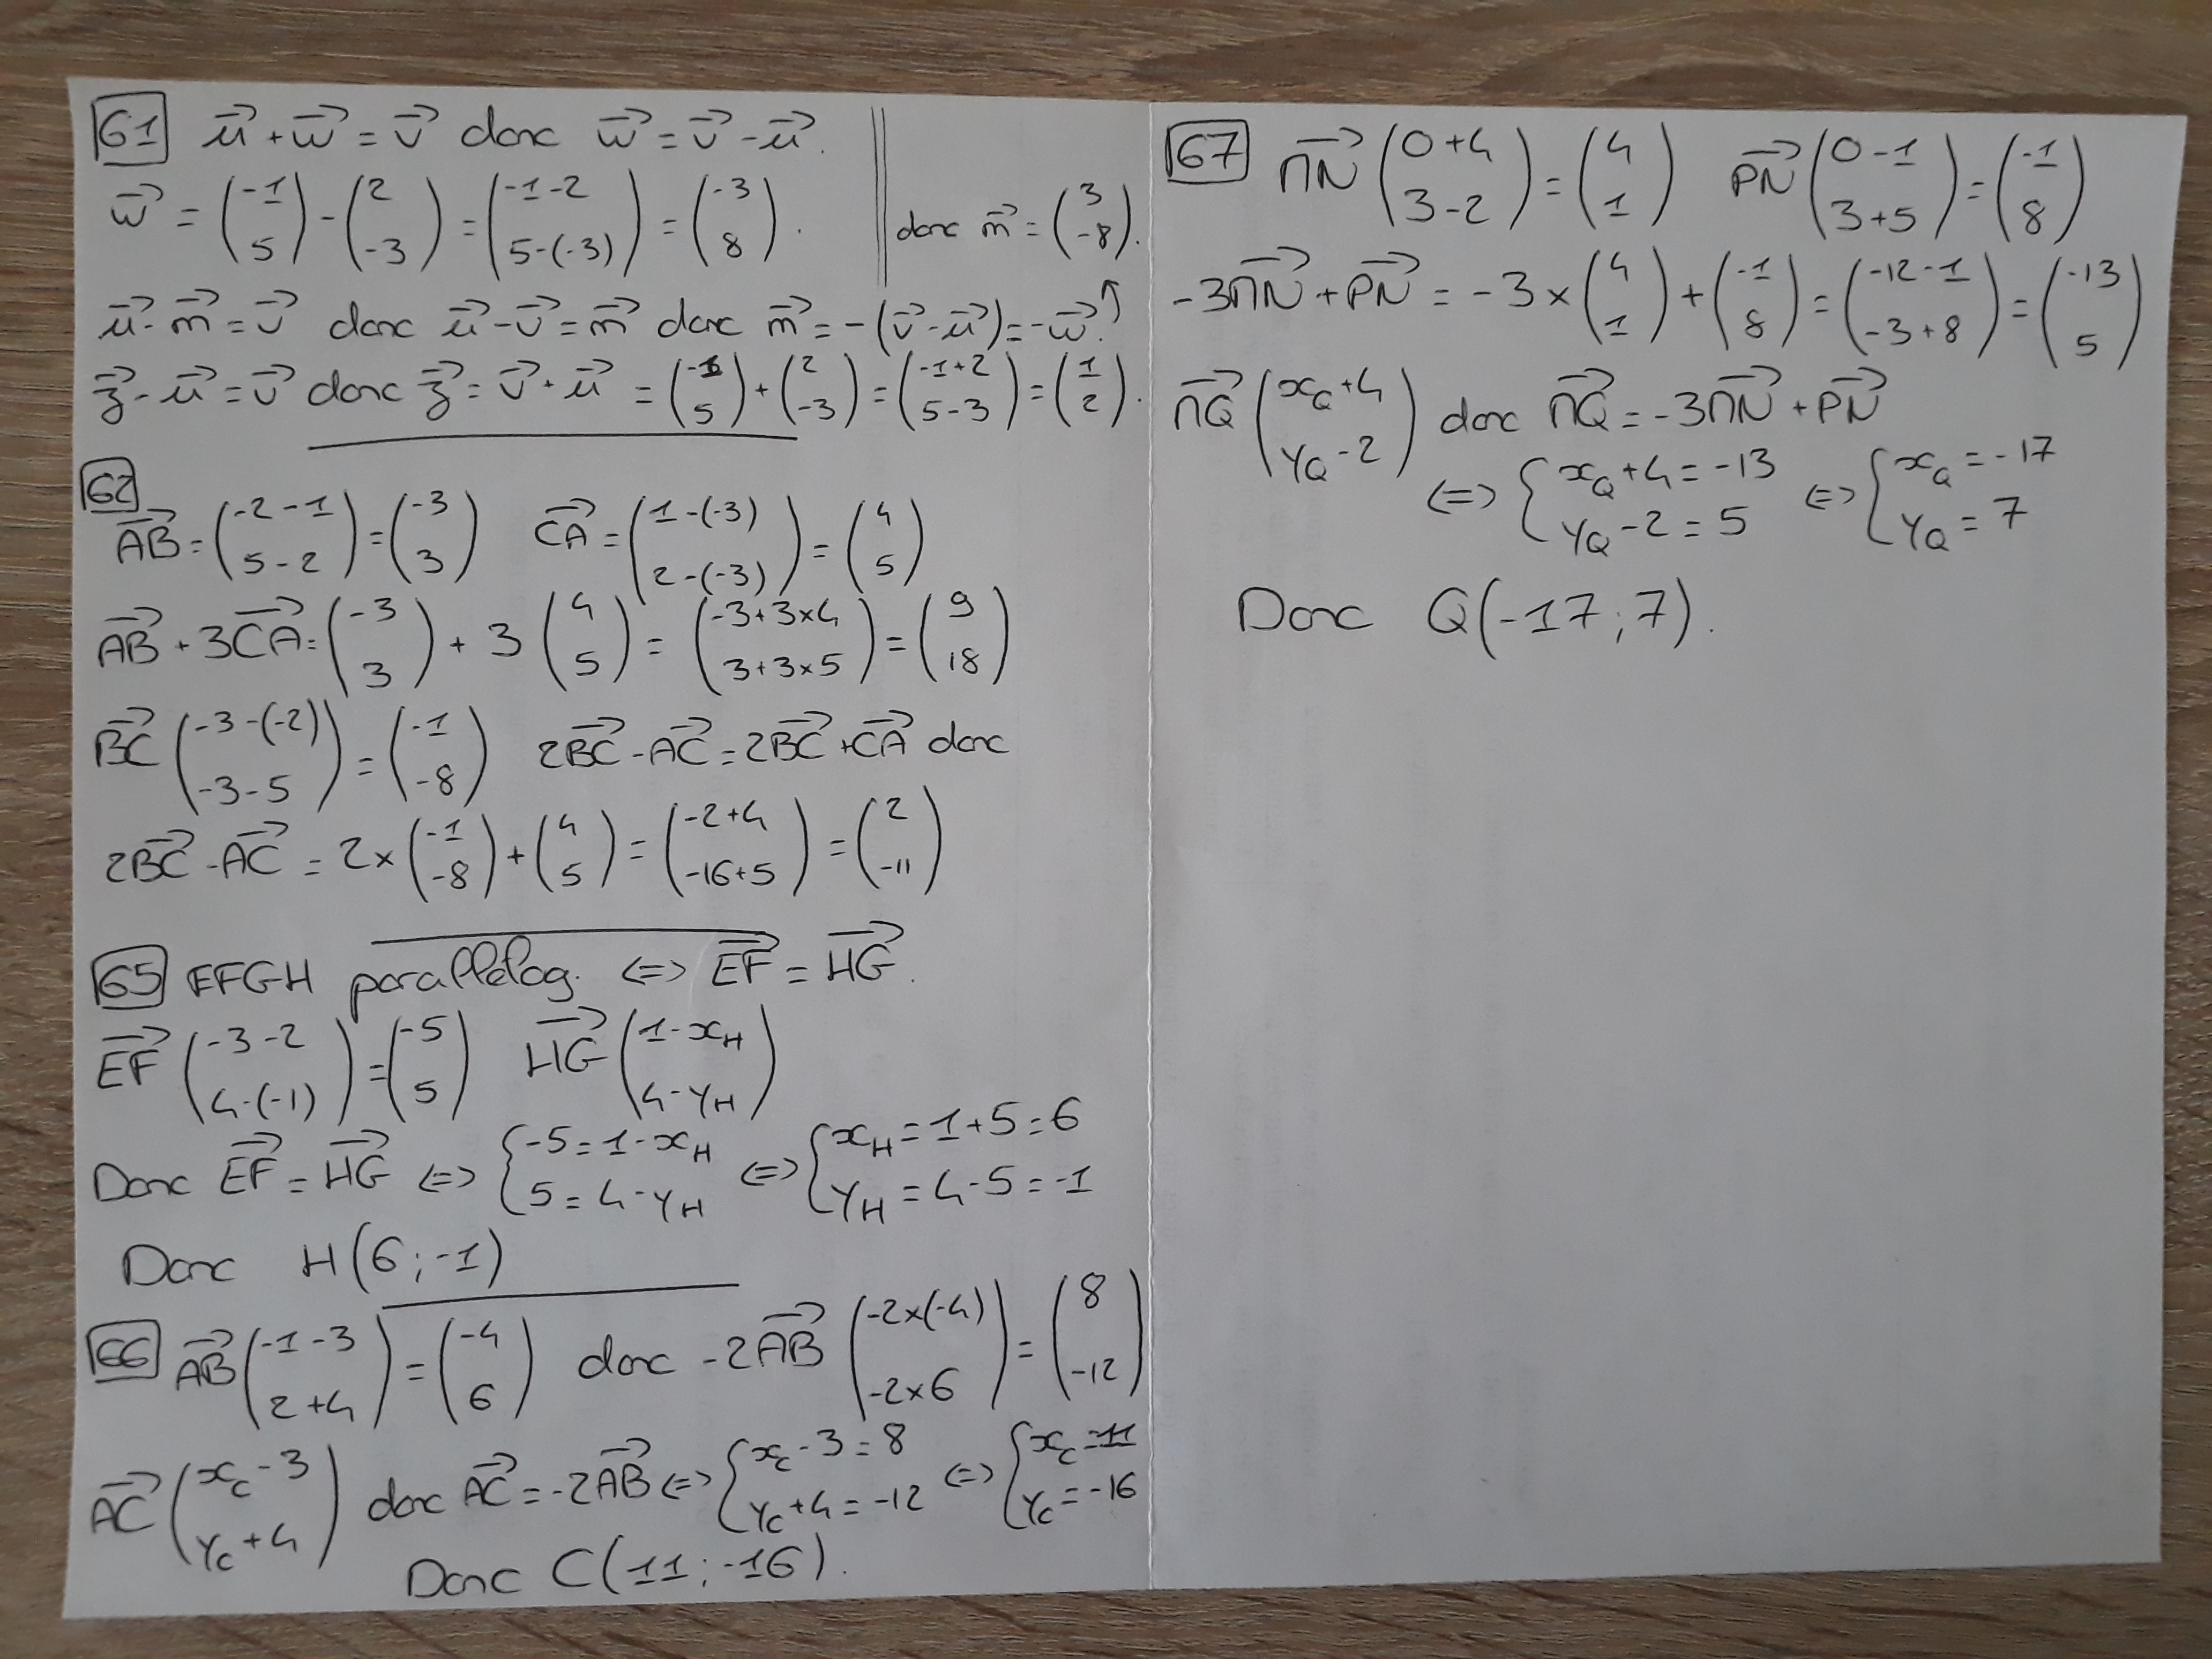 61 u⃗ + w⃗ = v⃗ donc w⃗ = v⃗ - u⃗.
w⃗ = (-1 ; 5) - (2 ; -3) = (-1-2 ; 5-(-3)) = (-3 ; 8).
donc m⃗ = (3 ; -8).
u⃗ - m⃗ = v⃗ donc u⃗ - v⃗ = m⃗ donc m⃗ = -(v⃗ - u⃗) = -w⃗. ↑
z⃗ - u⃗ = v⃗ donc z⃗ = v⃗ + u⃗ = (-1 ; 5) + (2 ; -3) = (-1+2 ; 5-3) = (1 ; 2).
62
AB⃗ = (-2-1 ; 5-2) = (-3 ; 3) CA⃗ = (1-(-3) ; 2-(-3)) = (4 ; 5)
AB⃗ + 3CA⃗ = (-3 ; 3) + 3 (4 ; 5) = (-3+3×4 ; 3+3×5) = (9 ; 18)
BC⃗ (-3-(-2) ; -3-5) = (-1 ; -8) 2BC⃗ - AC⃗ = 2BC⃗ + CA⃗ donc
2BC⃗ - AC⃗ = 2× (-1 ; -8) + (4 ; 5) = (-2+4 ; -16+5) = (2 ; -11)
65 EFGH parallélog. <=> EF⃗ = HG⃗.
EF⃗ (-3-2 ; 4-(-1)) = (-5 ; 5) HG⃗ (1-x_H ; 4-y_H)
Donc EF⃗ = HG⃗ <=> { -5 = 1-x_H ; 5 = 4-y_H <=> { x_H = 1+5 = 6 ; y_H = 4-5 = -1
Donc H(6 ; -1)
66 AB⃗ (-1-3 ; 2+4) = (-4 ; 6) donc -2AB⃗ (-2×(-4) ; -2×6) = (8 ; -12)
AC⃗ (x_C-3 ; y_C+4) donc AC⃗ = -2AB⃗ <=> { x_C-3 = 8 ; y_C+4 = -12 <=> { x_C = 11 ; y_C = -16
Donc C(11 ; -16).
67 MN⃗ (0+4 ; 3-2) = (4 ; 1) PN⃗ (0-1 ; 3+5) = (-1 ; 8)
-3MN⃗ + PN⃗ = -3× (4 ; 1) + (-1 ; 8) = (-12-1 ; -3+8) = (-13 ; 5)
MQ⃗ (x_Q+4 ; y_Q-2) donc MQ⃗ = -3MN⃗ + PN⃗
<=> { x_Q+4 = -13 ; y_Q-2 = 5 <=> { x_Q = -17 ; y_Q = 7
Donc Q(-17 ; 7).